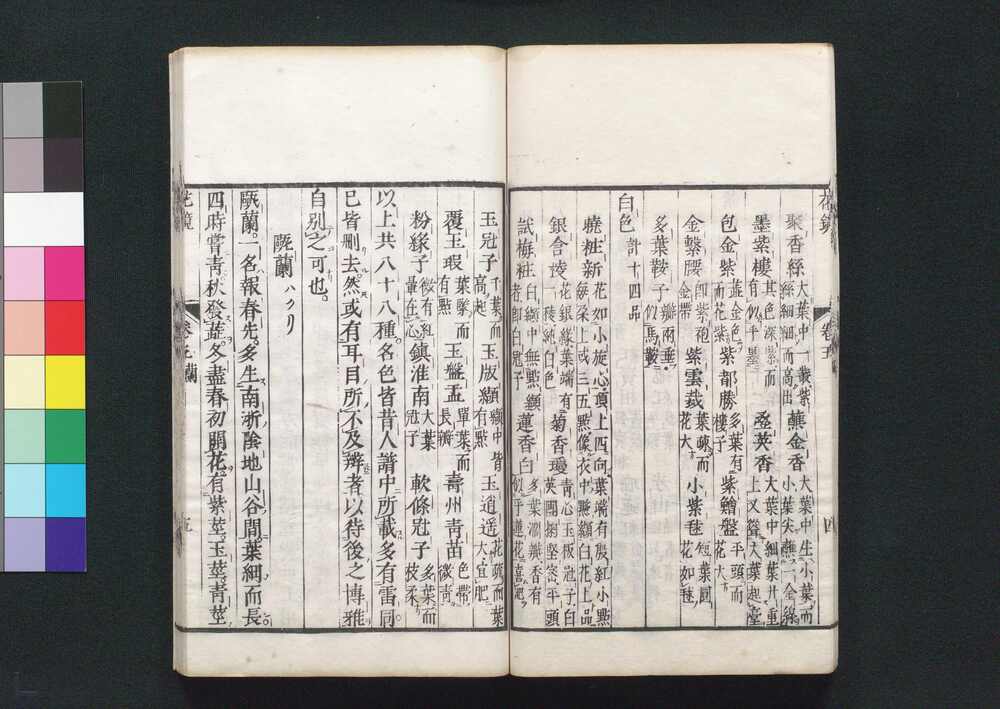 花鏡 卷五 四
聚香絲 大葉中一叢紫絲細細而高出 蘸金香 大葉中生小葉而小葉尖蘸一金線
墨紫樓 其色深紫而有似乎墨 疊英香 大葉中細葉廿重上又聳大葉起臺
包金紫 蓝金色而花紫 紫都勝 多葉有樓子 紫鱠盤 平頭而花大
金繫腰 即紫袍金帶 紫雲裁 葉疎而花大 小紫毬 短葉圓花如毬
多葉鞍子 瓣兩垂似馬鞍
白色 計十四品
曉粧新 花如小旋心頂上四向葉端有殷紅小點每朶上或三五點像衣中點纈白花上品
銀含稜 花銀緣葉端有一稜純白色 菊香瓊 青心玉板冠子白英團掬堅密平頭
試梅粧 白纈中無點纈者即白冠子 蓮香白 多葉濶瓣香有似乎蓮花喜肥
玉冠子 千葉而高起 玉版纈 纈中皆有點 玉逍遥 花疎而葉大宜肥
覆玉瑕 葉緊而有點 玉盤盂 單葉而長瓣 壽州青苗 色帶微青
粉緣子 微有紅暈在心 鎮淮南 大葉冠子 軟條冠子 多葉而枝柔
以上共八十八種各色皆昔人譜中所載多有雷同
已皆刪去然或有耳目所不及辨者以待後之博雅
自別之可也。
甌蘭 ハクリ
甌蘭。一名報春先。多生南浙陰地山谷間。葉細而長。
四時嘗青秋發蕋冬盡春初開花。有紫莖玉莖青莖
花鏡 卷五蘭 五